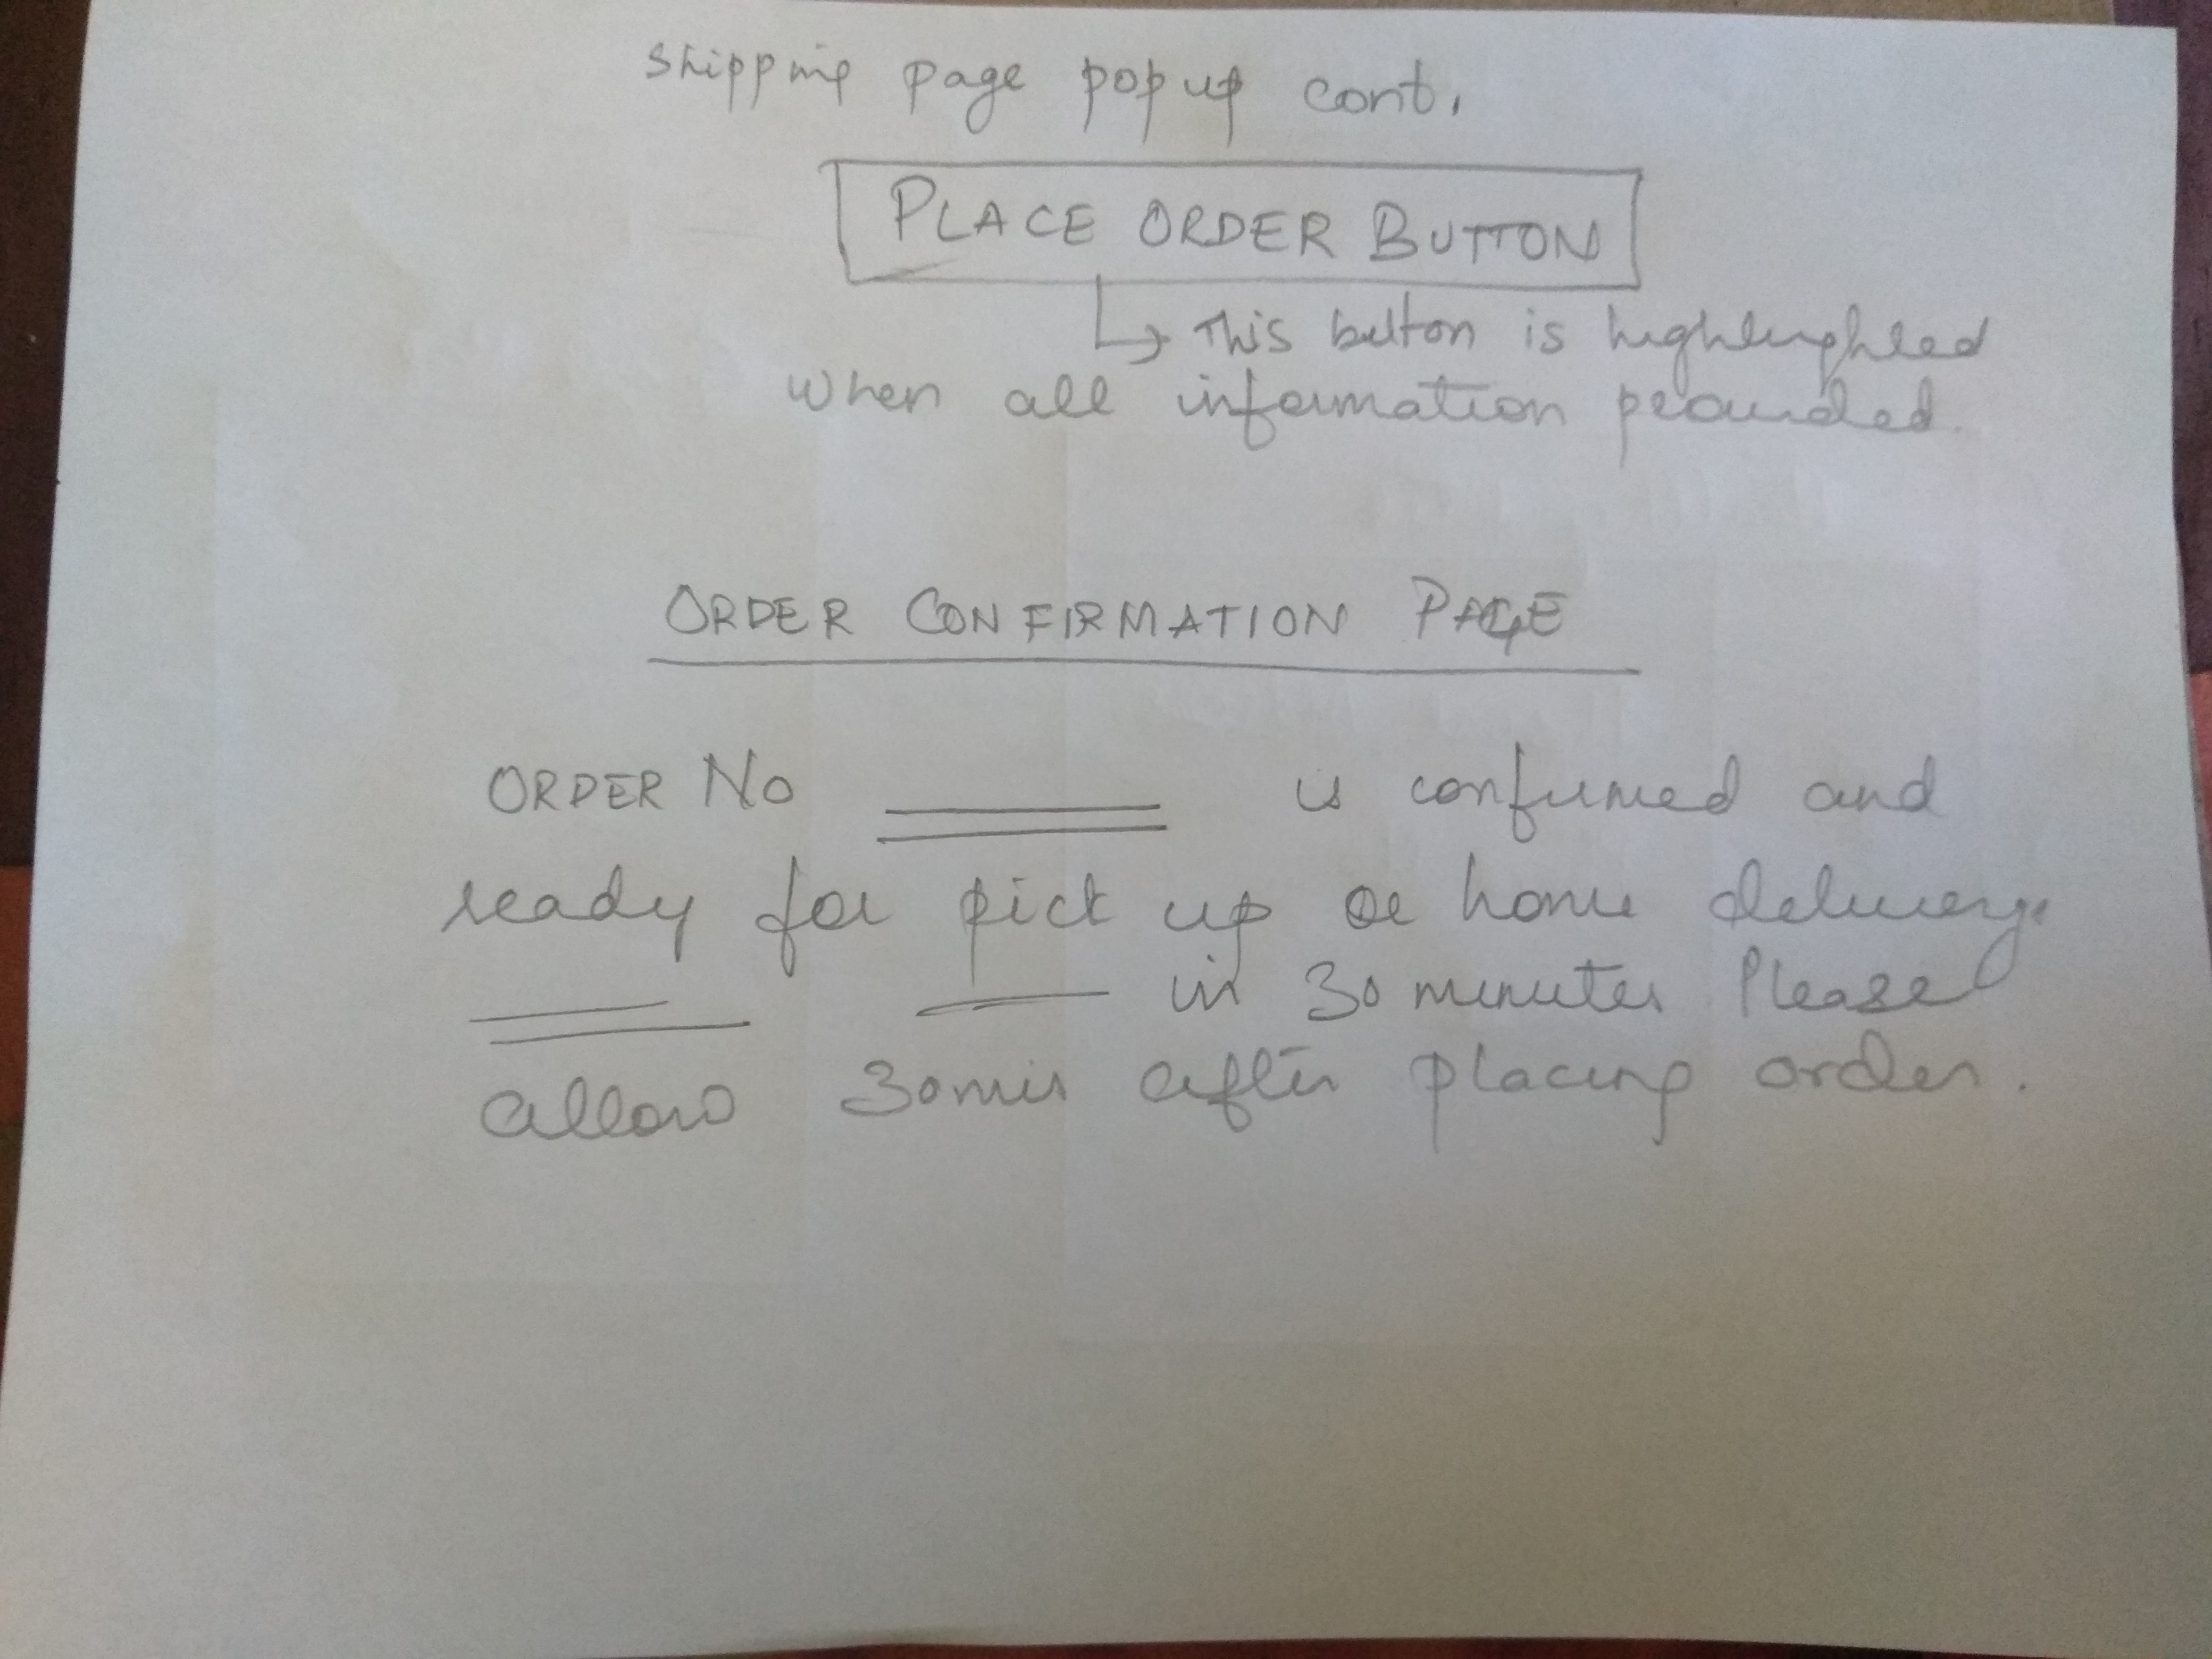 Shipping page pop up cont.
PLACE ORDER BUTTON
This button is highlighted
when all information provided.
ORDER CONFIRMATION PAGE
ORDER No is confirmed and
ready for pick up or home delivery.
in 30 minutes Please
allow 30 mis after placing order.